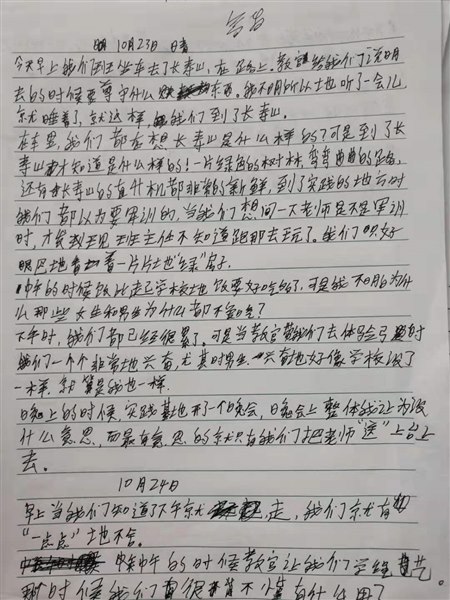 10月23日 晴
今天早上我们到坐车去了长寿山,在路上。教官给我们说明
去的时候要尊守什么东西。我不明所以地听了一会儿
就睡着了,就这样我们到了长寿山。
在车里,我们都在想长寿山是什么样的?可是到了长
寿山才知道是什么样的!一片绿色的树林,弯弯曲曲的路,
还有长寿山的有机都非常的新鲜,到了实践的地方时
我们都以为要军训的,当我们想问一下老师是不是军训
时,才发现班主任不知道跑那去玩了。我们只好
眼巴地看着一片片土地"绿"房子.
中午的时候饭比起学校地饭要好吃的了,可是我不明白为什
么那些女生和男生为什么都不爱吃?
下午时,我们都已经很累了。可是当教官带我们去体验弓时
我们一个个非常地兴奋,尤其时男生,兴奋地好像学校没了
一样,就算是我也一样.
晚上的时候,实践基地开了个晚会,晚会上整体我认为没
什么意思,而最有意思的就只有我们把老师"送"上台上
去。
10月24日
早上当我们知道了下午就走,我们就有
"一点点"土地不舍。
中午的时候教官让我们学经艺。
那时候我们有很不算有什么用了